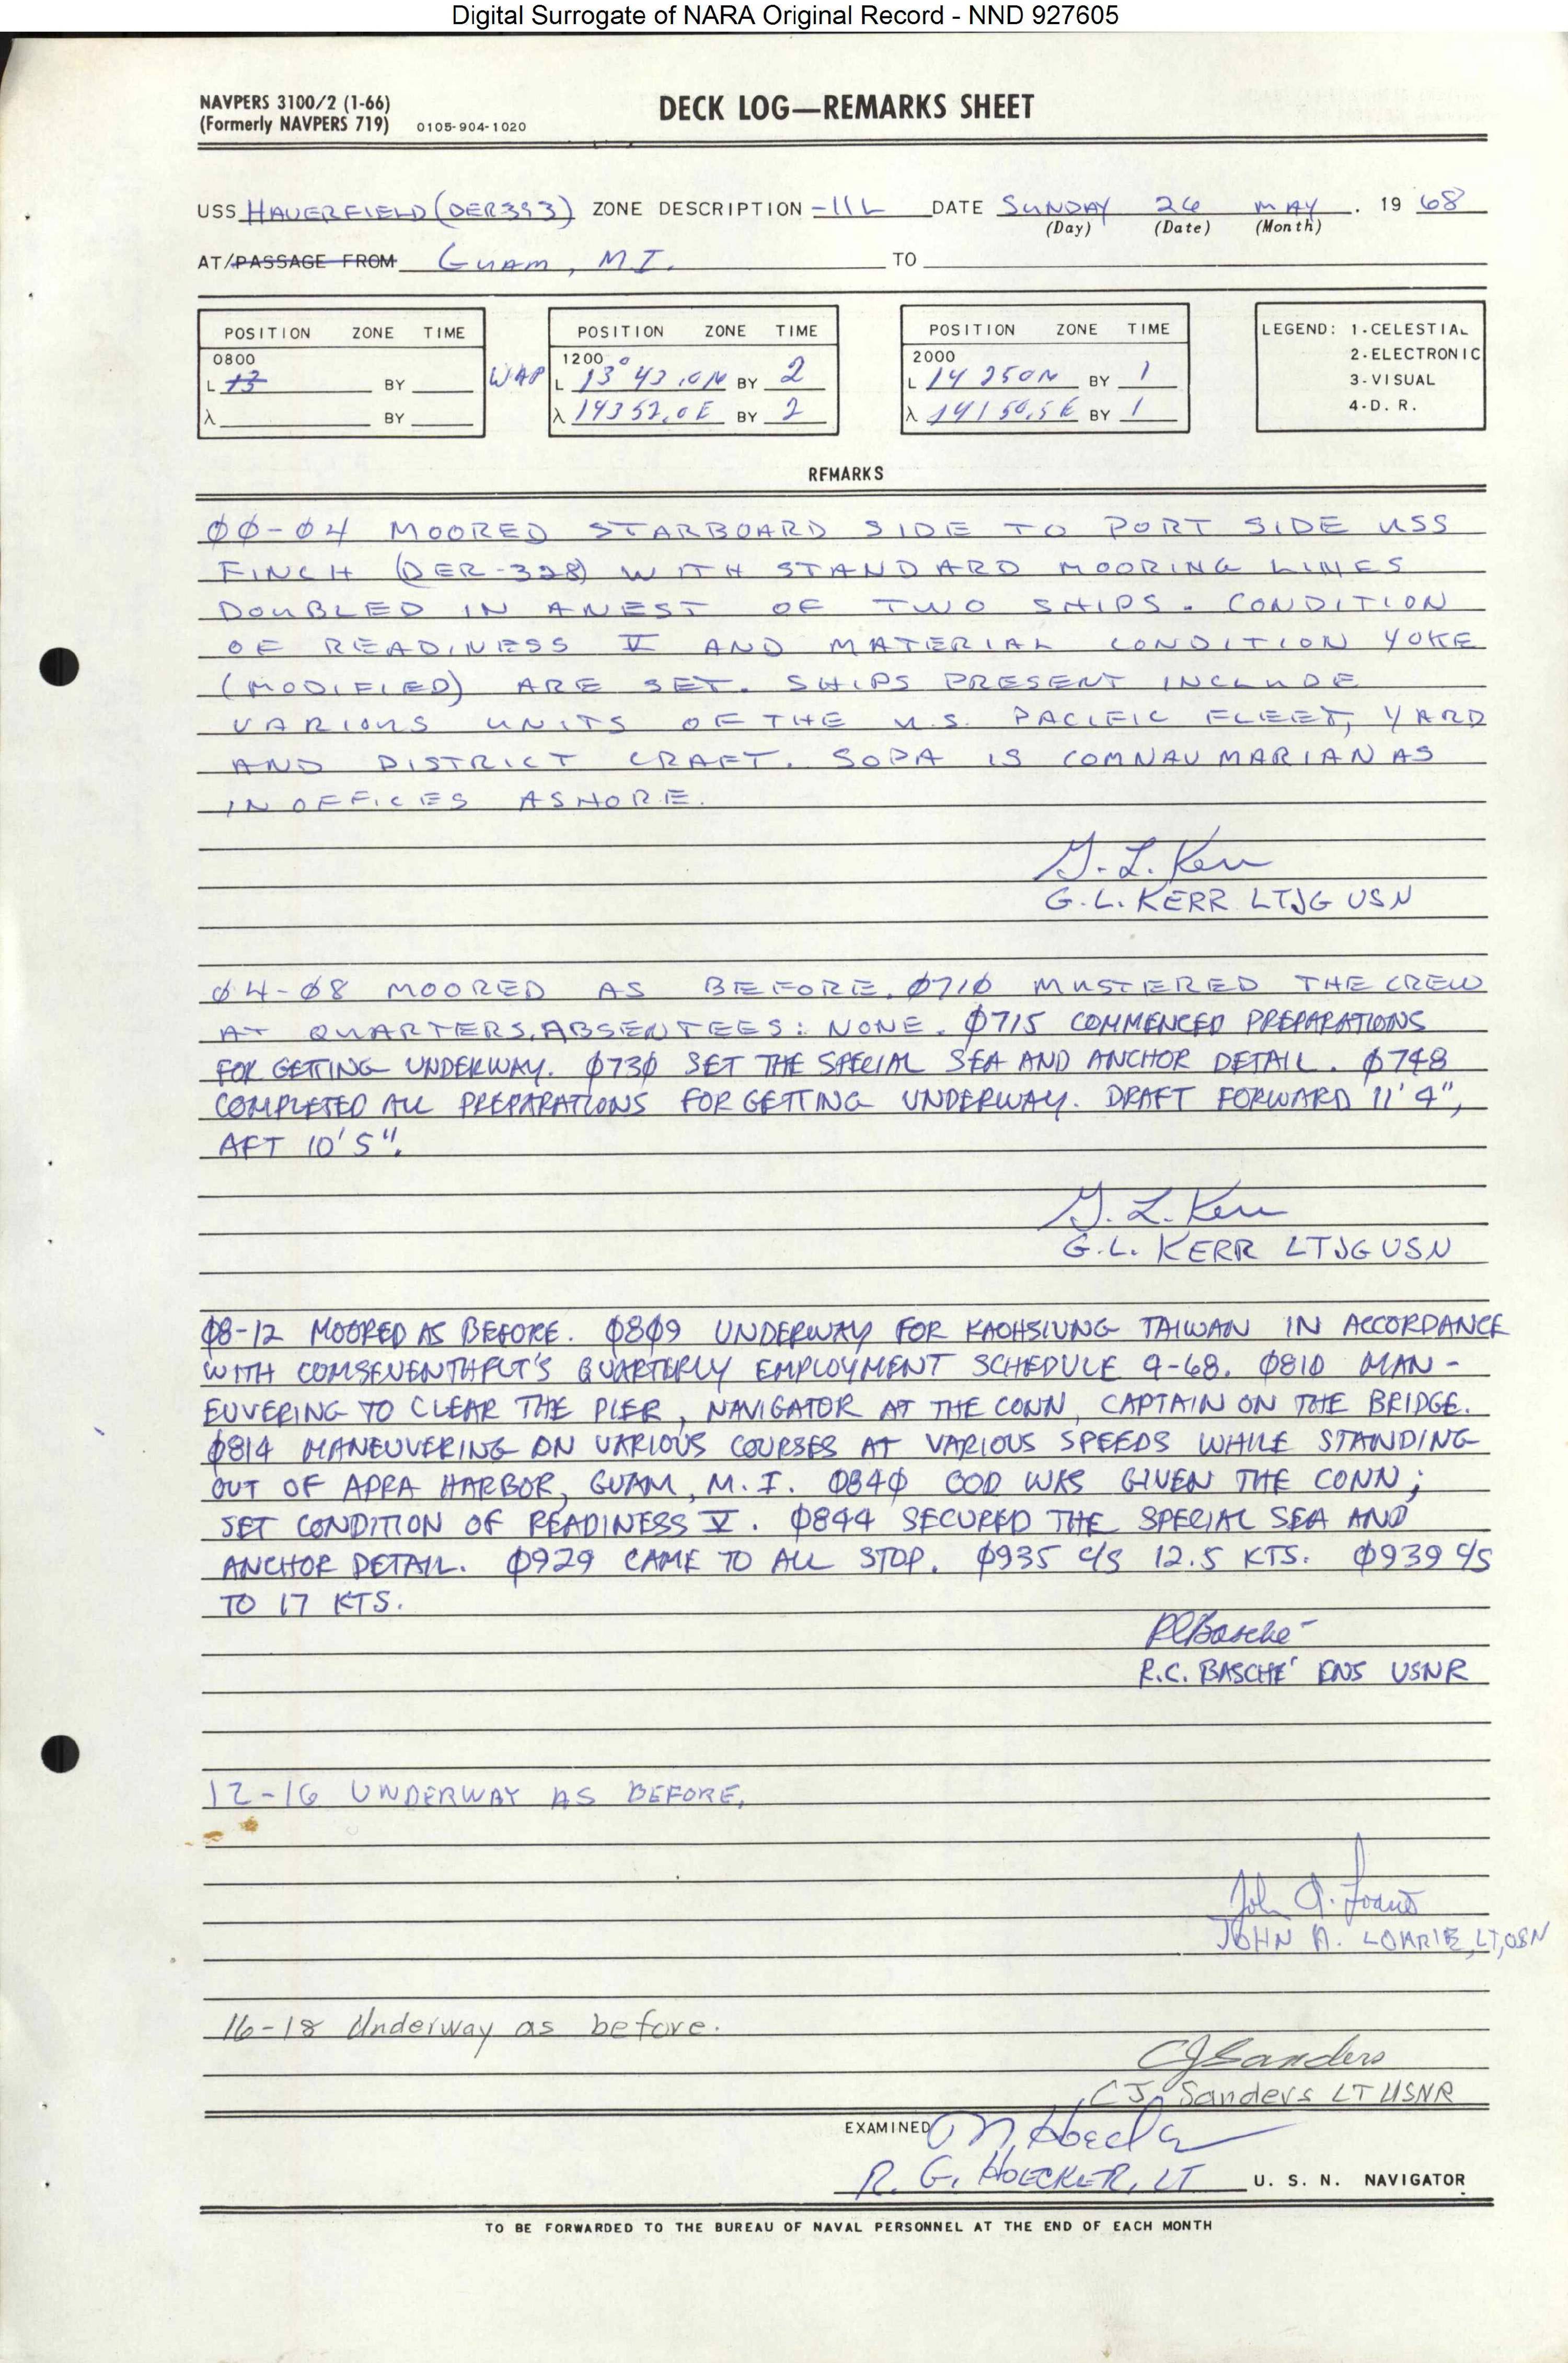 Digital Surrogate of NARA Original Record - NND 927605
NAVPERS 3100/2 (1-66)
(Formerly NAVPERS 719) 0105-904-1020
DECK LOG—REMARKS SHEET
USS HAVERFIELD (DER393) ZONE DESCRIPTION -11L DATE SUNDAY 26 MAY . 19 68
(Day) (Date) (Month)
AT/PASSAGE FROM GUAM, M.I. TO
POSITION ZONE TIME
0800
L 13 BY
λ BY
POSITION ZONE TIME
1200
L 13° 43.0N BY 2
λ 143 52.0E BY 2
POSITION ZONE TIME
2000
L 14 250N BY 1
λ 141 50.5E BY 1
LEGEND: 1-CELESTIAL
2-ELECTRONIC
3-VISUAL
4-D. R.
REMARKS
ØØ-Ø4 MOORED STARBOARD SIDE TO PORT SIDE USS
FINCH (DER-328) WITH STANDARD MOORING LINES
DOUBLED IN A NEST OF TWO SHIPS. CONDITION
OF READINESS V AND MATERIAL CONDITION YOKE
(MODIFIED) ARE SET. SHIPS PRESENT INCLUDE
VARIOUS UNITS OF THE U.S. PACIFIC FLEET, YARD
AND DISTRICT CRAFT. SOPA IS COMNAVMARIANAS
IN OFFICES ASHORE.
G. L. Kerr
G.L. KERR LTJG USN
Ø4-Ø8 MOORED AS BEFORE. Ø71Ø MUSTERED THE CREW
AT QUARTERS, ABSENTEES: NONE. Ø715 COMMENCED PREPARATIONS
FOR GETTING UNDERWAY. Ø73Ø SET THE SPECIAL SEA AND ANCHOR DETAIL. Ø748
COMPLETED ALL PREPARATIONS FOR GETTING UNDERWAY. DRAFT FORWARD 11' 4",
AFT 10' 5".
G. L. Kerr
G.L. KERR LTJG USN
Ø8-12 MOORED AS BEFORE. Ø8Ø9 UNDERWAY FOR KAOHSIUNG TAIWAN IN ACCORDANCE
WITH COMSEVENTHFLT'S QUARTERLY EMPLOYMENT SCHEDULE 9-68. Ø81Ø MAN-
EUVERING TO CLEAR THE PIER, NAVIGATOR AT THE CONN, CAPTAIN ON THE BRIDGE.
Ø814 MANEUVERING ON VARIOUS COURSES AT VARIOUS SPEEDS WHILE STANDING
OUT OF APRA HARBOR, GUAM, M.I. Ø84Ø OOD WAS GIVEN THE CONN;
SET CONDITION OF READINESS V. Ø844 SECURED THE SPECIAL SEA AND
ANCHOR DETAIL. Ø929 CAME TO ALL STOP. Ø935 C/S 12.5 KTS. Ø939 C/S
TO 17 KTS.
RCBasché
R.C. BASCHÉ ENS USNR
12-16 UNDERWAY AS BEFORE.
JOHN A. LOWRIE, LT, USN
16-18 Underway as before.
CJSanders
CJ Sanders LT USNR
EXAMINED
R. G. HOECKER, LT U. S. N. NAVIGATOR
TO BE FORWARDED TO THE BUREAU OF NAVAL PERSONNEL AT THE END OF EACH MONTH